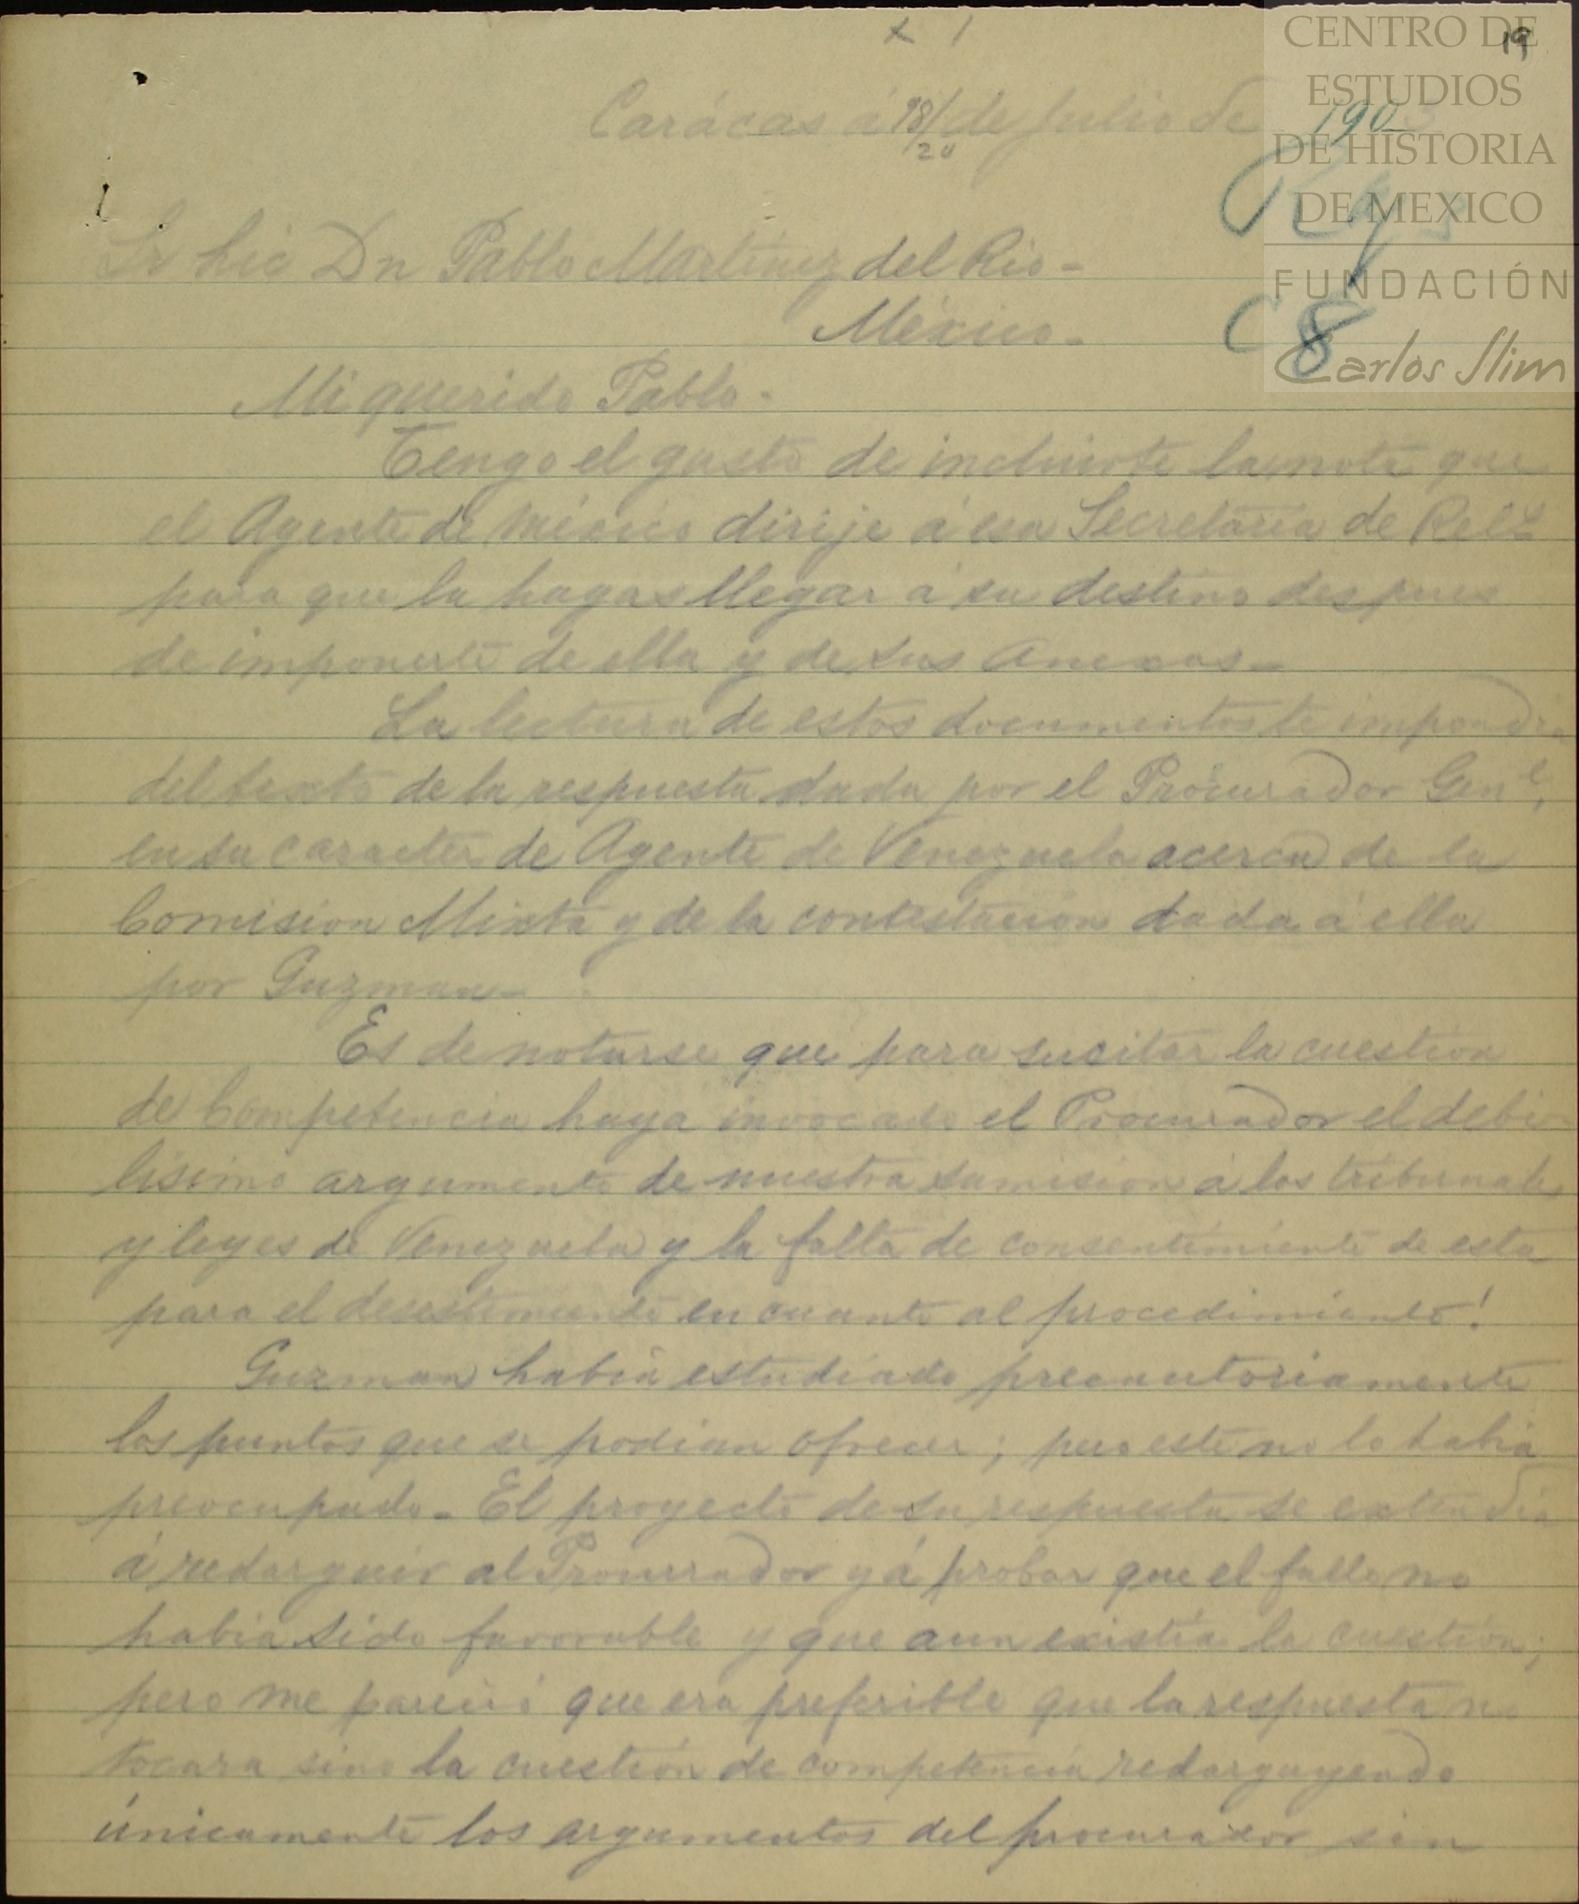 x 1
19
CENTRO DE
ESTUDIOS
DE HISTORIA
DE MEXICO
FUNDACIÓN
Carlos Slim
Carácas á 18/20 de Julio de 190
C 8
Sr Lic Dn Pablo Martinez del Rio-
México-
Mi querido Pablo-
Tengo el gusto de incluirte la nota que
el Agente de México dirije á esa Secretaría de Rels
para que la hagas llegar á su destino despues
de imponerte de ella y de sus Anexos-
La lectura de estos documentos te impondra
del texto de la respuesta dada por el Procurador Genl,
en su caracter de Agente de Venezuela acerca de la
Comision Mixta y de la contestación dada á ella
por Guzman-
Es de notarse que para sucitar la cuestion
de Competencia haya invocado el Procurador el debi
lisimo argumento de nuestra sumision á los tribunales
y leyes de Venezuela y la falta de consentimiento de esta
para el desestimiento en cuanto al procedimiento!
Guzman habia estudiado
los puntos que se podian ofrecer; pero este no lo habia
preocupado- El proyecto de su respuesta se extendia
á redarguir al Procurador y á probar que el fallo no
habia sido favorable y que aun existía la cuestion;
pero me pareció que era preferible que la respuesta no
tocara sino la cuestión de competencia redarguyendo
únicamente los argumentos del procurador sin